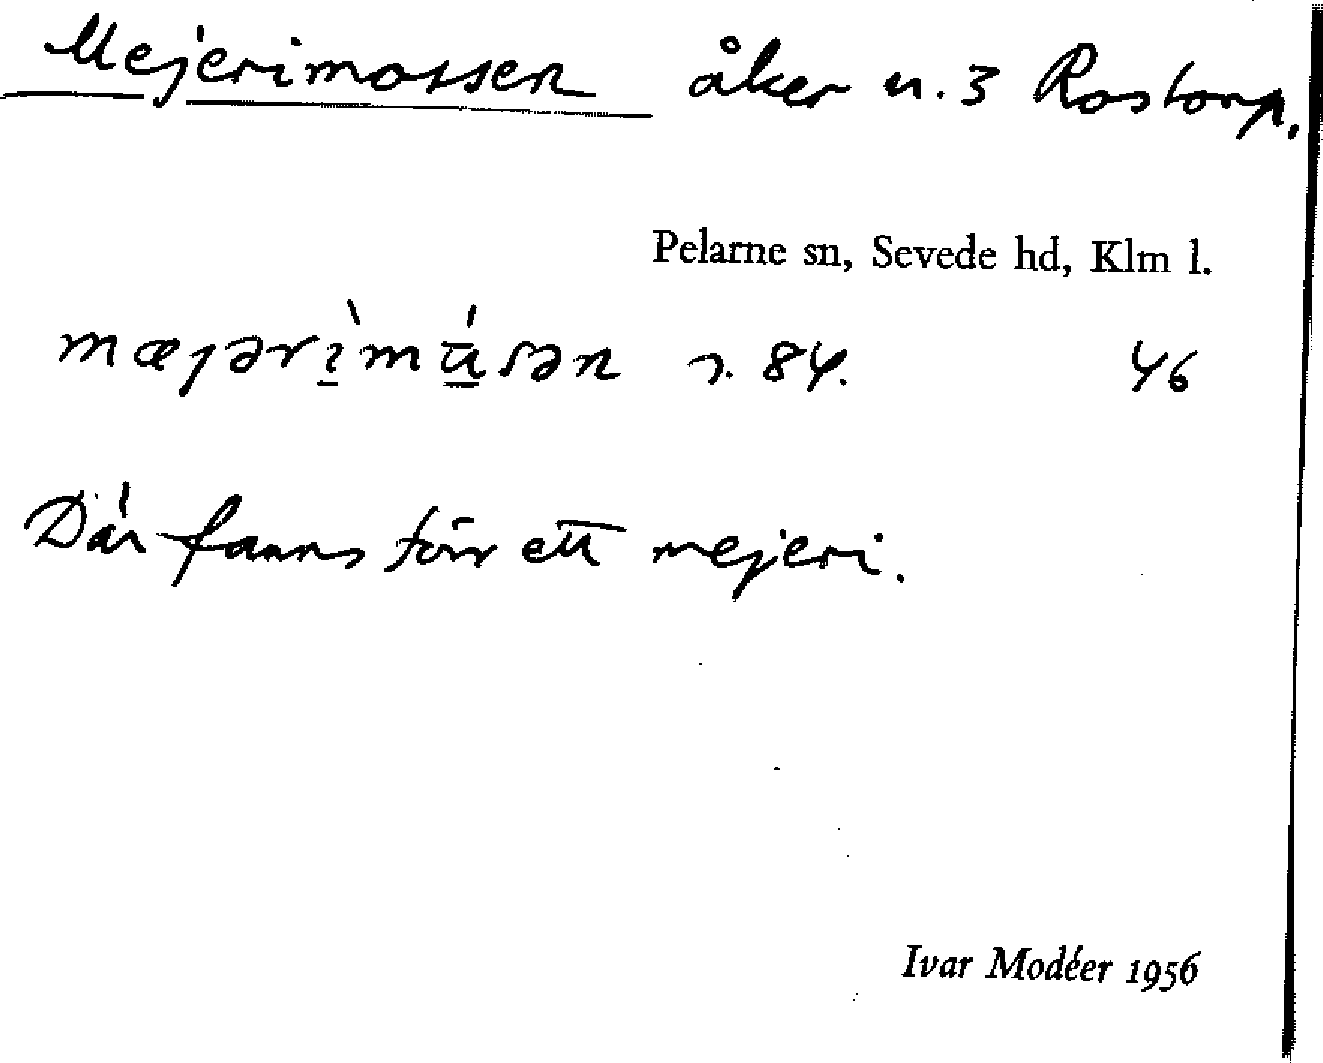 Mejerimossen åker n. 3 Rostorp.
Pelarne sn, Sevede hd, Klm l.
mæjərì̱mú̱sən s. 84. 46
Där fanns förr ett mejeri.
Ivar Modéer 1956